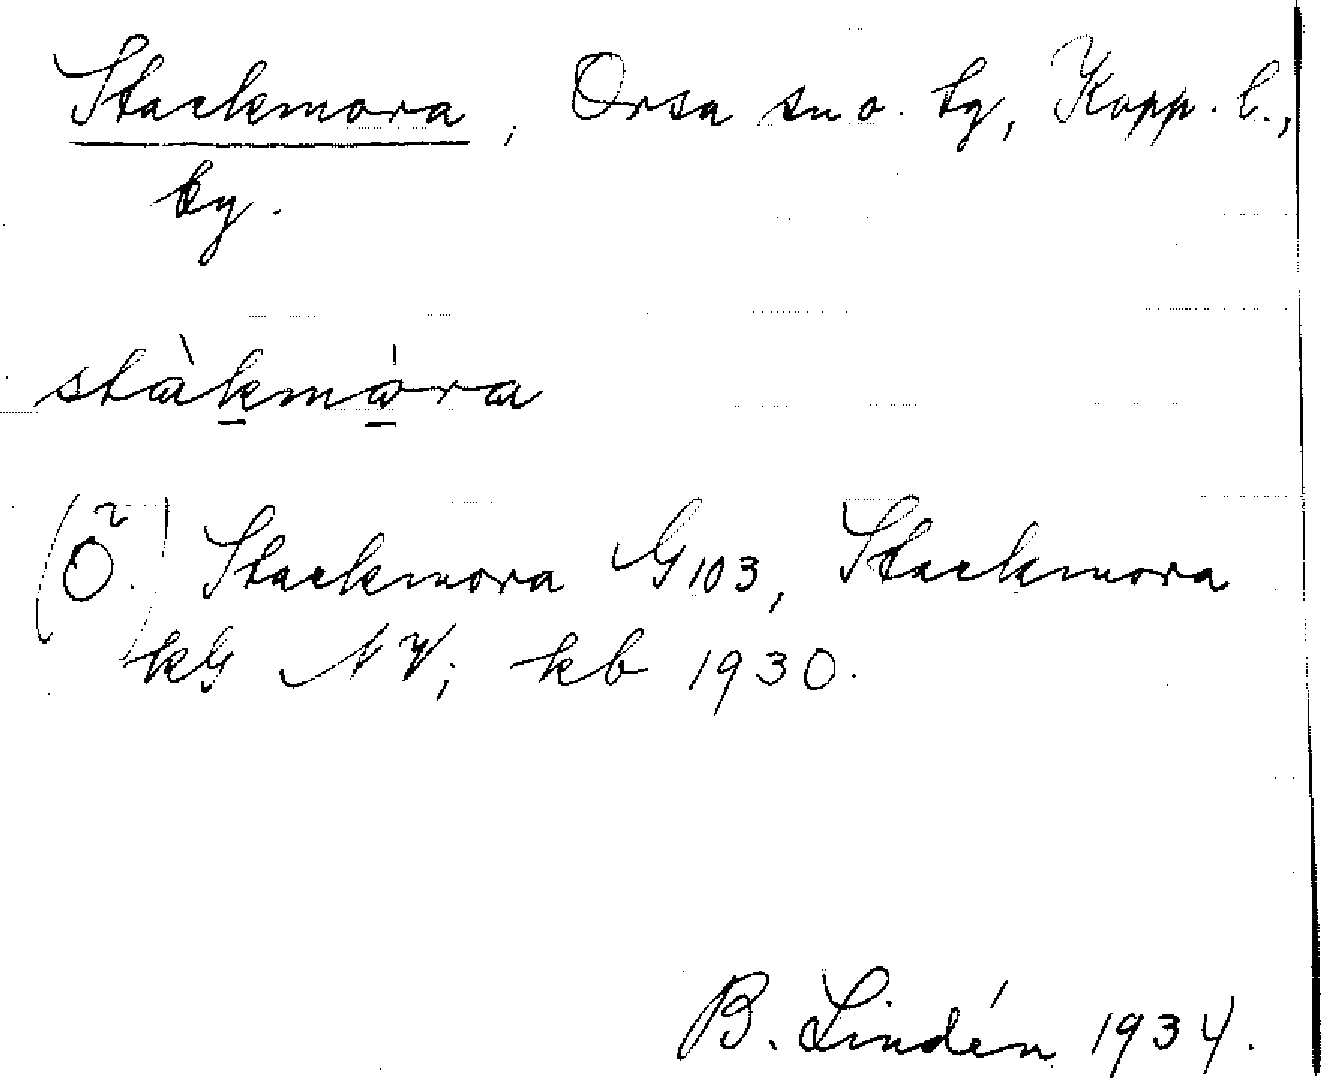 Stackmora, Orsa sn o. tg, Kopp. l.,
by.
stàkmòra
(Ö.) Stackmora G 103, Stackmora
kG NV; kb 1930.
B. Lindén 1934.